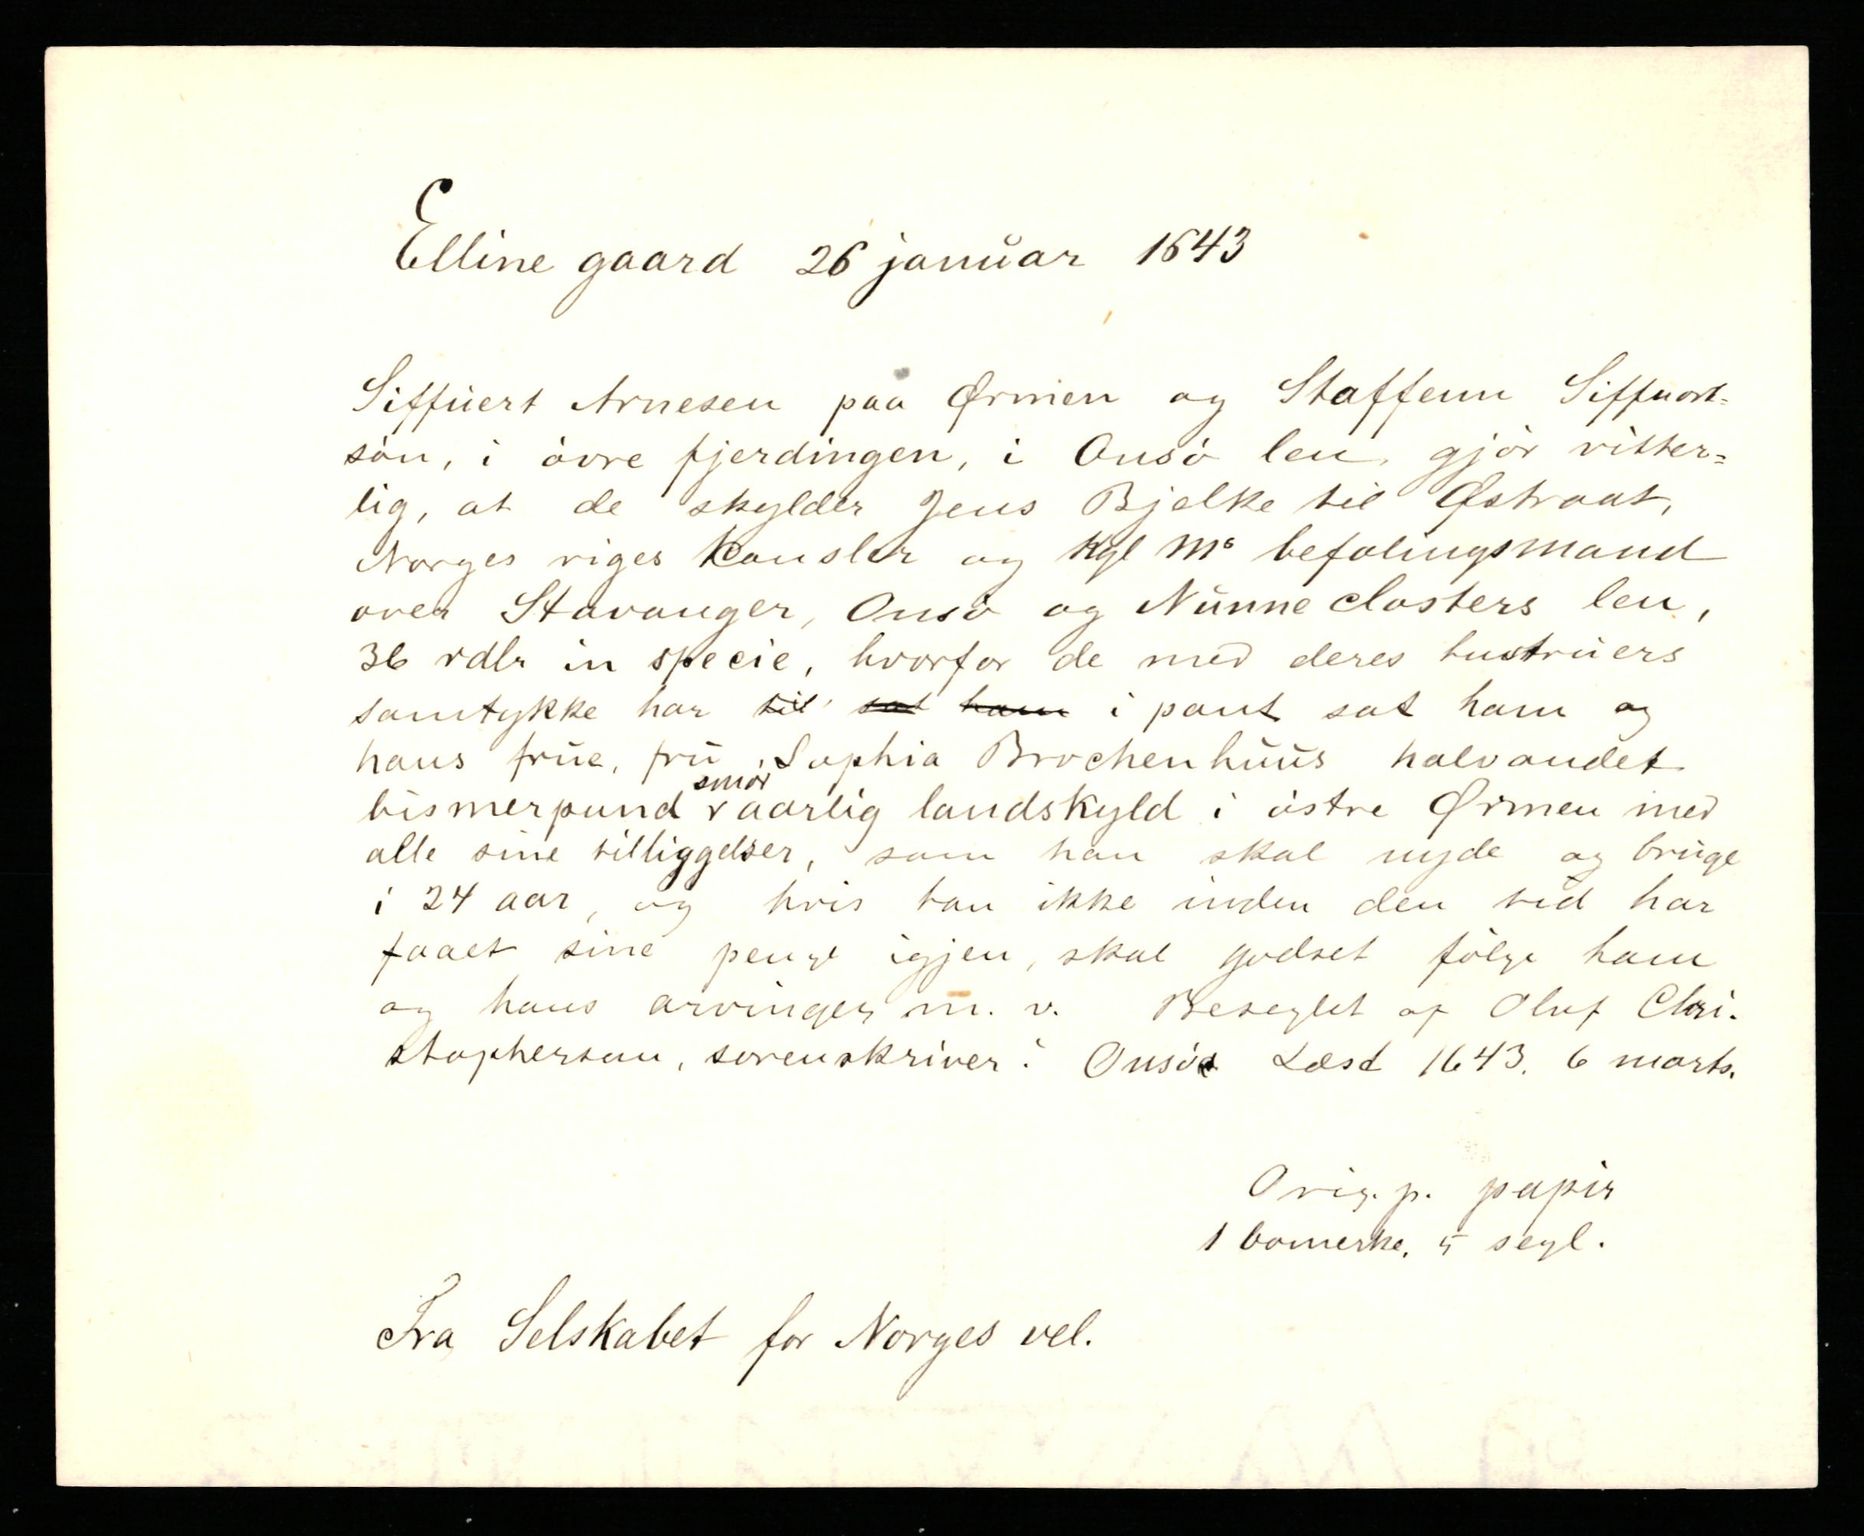 Elline gaard 26 januar 1643
Siffuert Arnesen paa Ørmen og Staffenn Siffuort=
søn, i øvre fjerdingen, i Onsø len, gjør vitter=
lig, at de skylder Jens Bjelke til Østraat,
Norges riges kansler og kgl Ms befalingsmand
over Stavanger, Onsø og Nunneclosters len,
36 rdlr in specie, hvorfor de med deres hustruers
samtykke har til sat ham i pant sat ham og
hans frue, fru Sophia Brochenhuus halvandet
bismerpund smør aarlig landskyld i østre Ørmen med
alle sine tilliggelser, som han skal nyde og bruge
i 24 aar, og hvis han ikke inden den tid har
faaet sine penge igjen, skal godset følge ham
og hans arvinger m. v. Beseglet af Oluf Chri-
stophersøn, sorenskriver i Onsø. Læst 1643. 6 marts.
Orig. p. papir
1 bomerke, 5 segl.
Fra Selskabet for Norges vel.